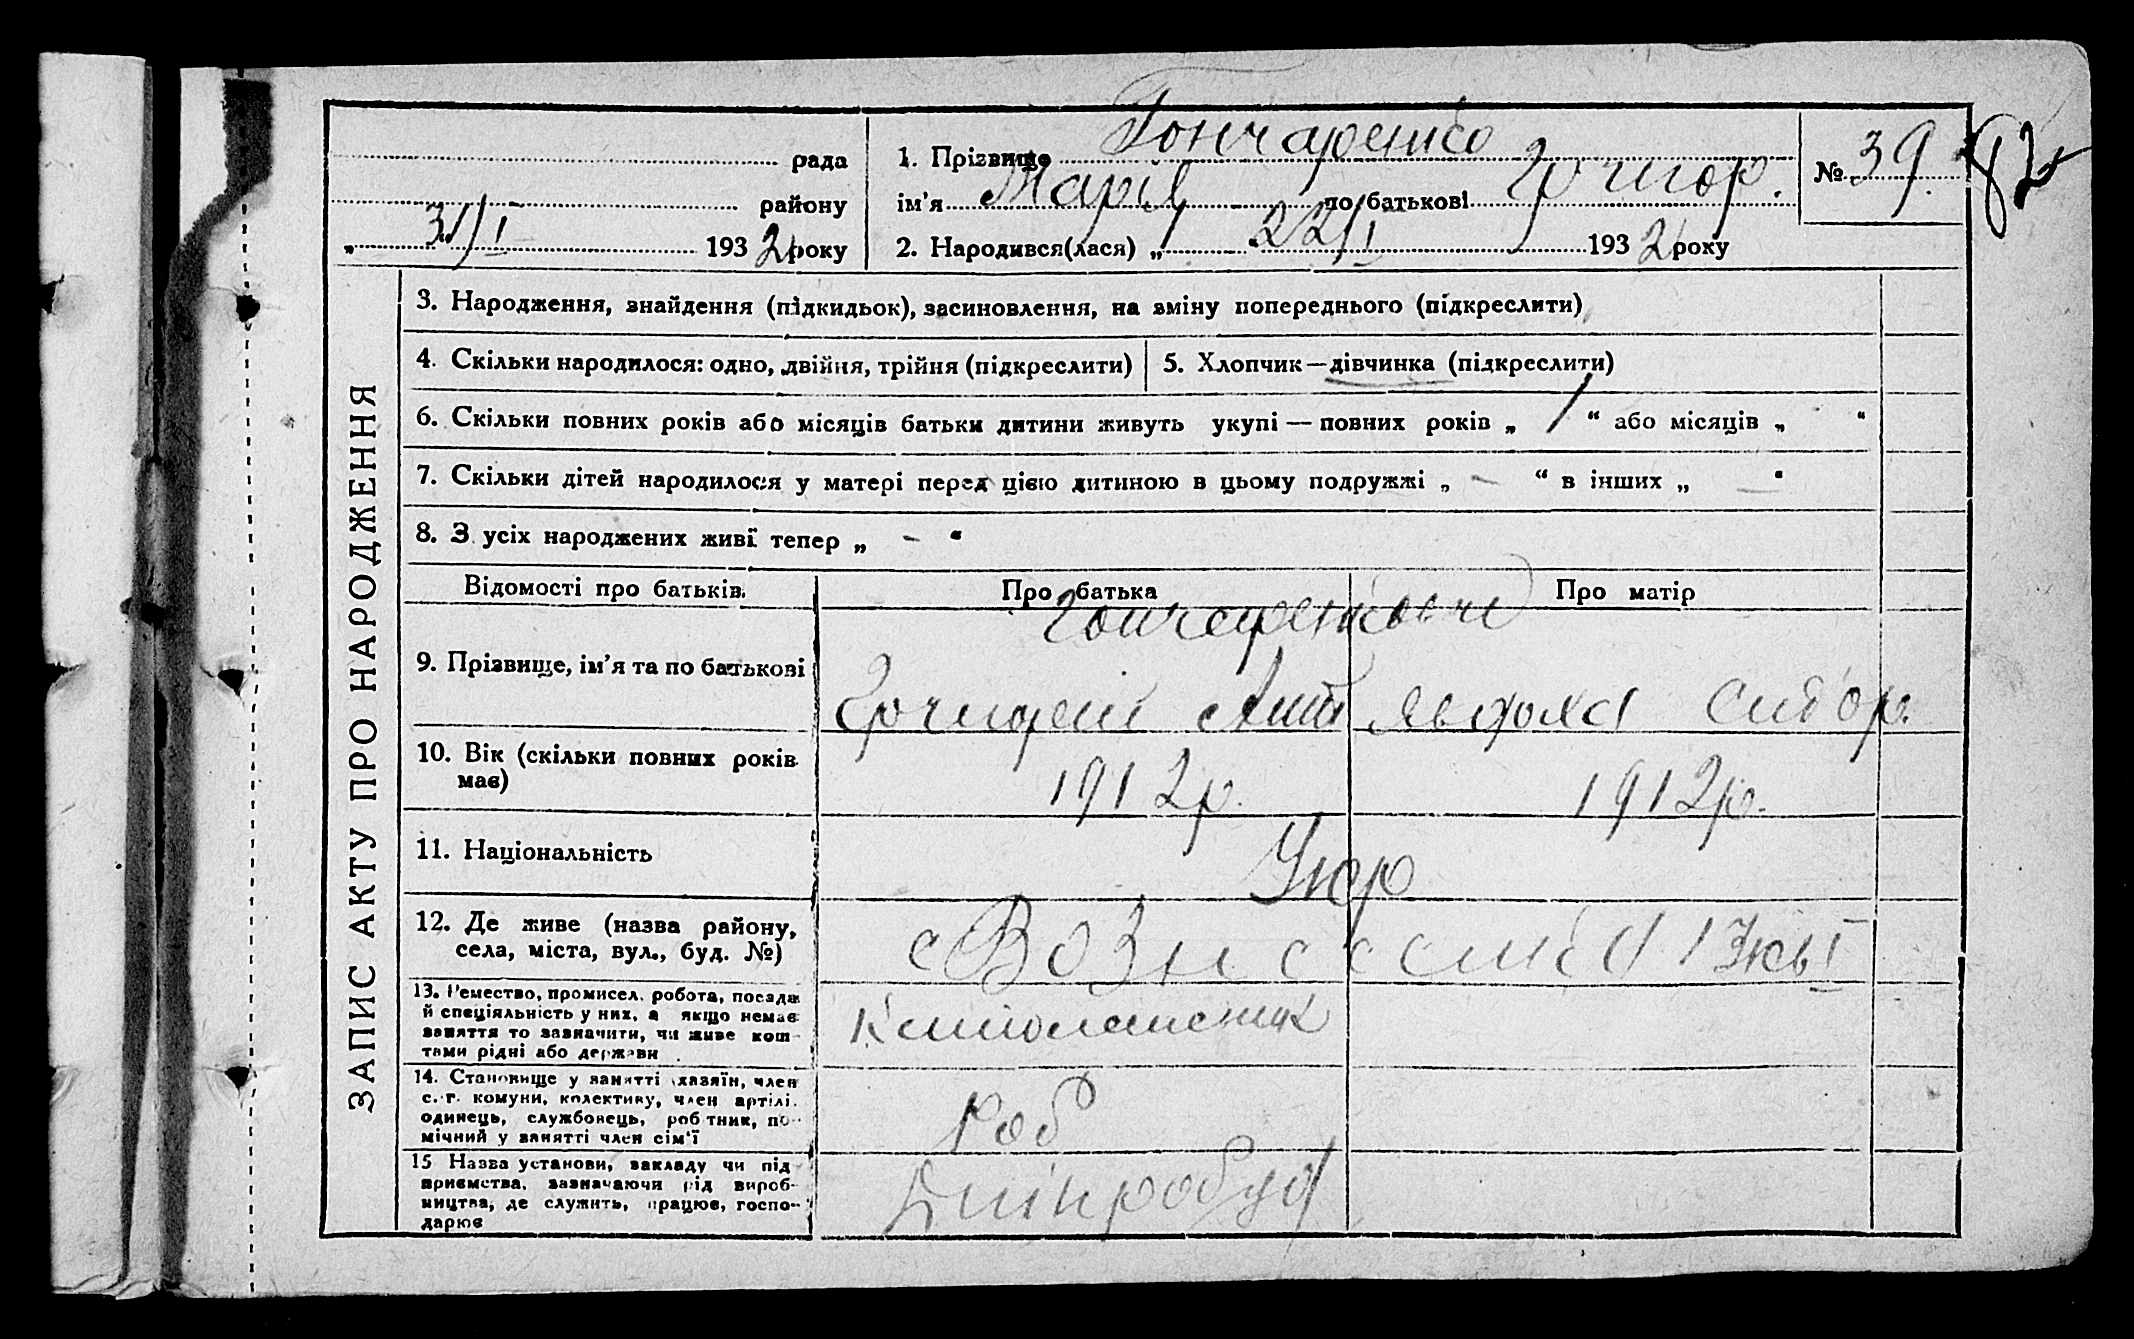 рада
району
„ 31/I 1932 року
1. Прізвище Гончаренко
ім'я Марія по батькові Григор.
2. Народився(лася) „ 22/I 1932 року
№ 39.
82
ЗАПИС АКТУ ПРО НАРОДЖЕННЯ
3. Народження, знайдення (підкидьок), засиновлення, на зміну попереднього (підкреслити)
4. Скільки народилося: одно, двійня, трійня (підкреслити)
5. Хлопчик — дівчинка (підкреслити)
6. Скільки повних років або місяців батьки дитини живуть укупі — повних років „ 1 “ або місяців „ “
7. Скільки дітей народилося у матері перед цією дитиною в цьому подружжі „ — “ в інших „ — “
8. З усіх народжених живі тепер „ — “
Відомості про батьків.
Про батька
Про матір
9. Прізвище, ім'я та по батькові
Гончаренкови
Григорій Ант
Явдоха Сидор.
10. Вік (скільки повних років
має)
1912р.
1912р.
11. Національність
Укр
12. Де живе (назва району,
села, міста, вул., буд. №)
с Вознесенка
13. Ремество, промисел, робота, посада
й спеціяльність у них, а якщо немає
заняття то зазначити, чи живе кош-
тами рідні або держави
14. Становище у занятті (хазяїн, член
с.-г. комуни, колективу, член артілі,
одинець, службовець, робітник, по-
мічний у занятті член сім'ї
Роб
15 Назва установи, закладу чи під-
приємства, зазначаючи рід вироб-
ництва, де служить, працює, госпо-
дарює
Дніпробуд